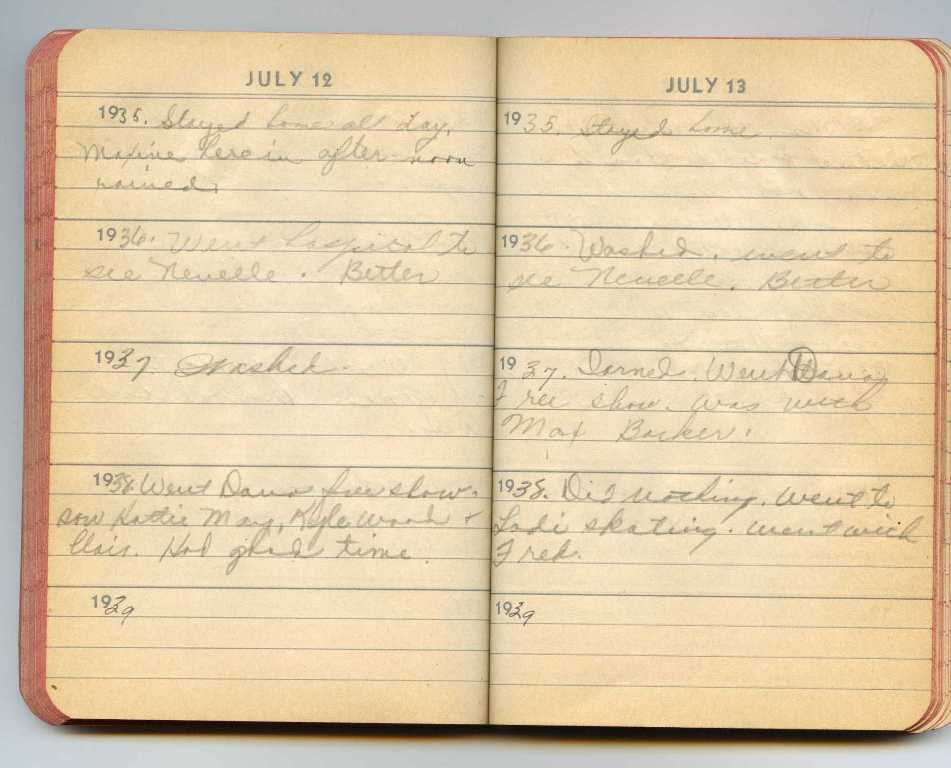 JULY 12
1935. Stayed home all day,
Maxine here in after-noon
rained.
1936. Went hospital to
see Nevelle. Better
1937. Washed.
1938. Went Dana free show.
saw Hattie Mary, Kyle Wood &
Clair. Had good time.
1939
JULY 13
1935. Stayed home.
1936. Washed. went to
see Nevelle. Better
1937. Ironed. Went Dana
Free show. was with
Max Barker.
1938. Did nothing. Went to
Ladi skating. went with
Fred.
1939